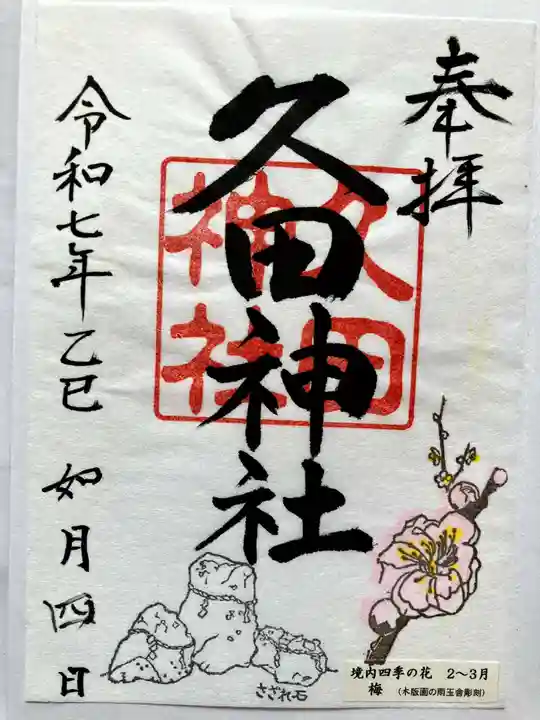 奉拝
久田神社
久田
神社
令和七年乙巳 如月四日
さざれ石
境内四季の花 2〜3月
梅 (木版画の雨玉舎彫刻)